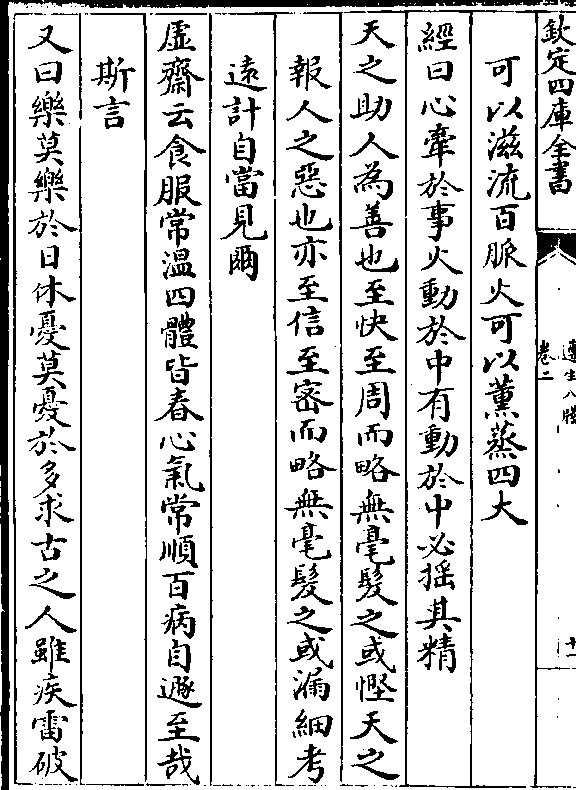 欽定四庫全書
遵生八牋
卷二
十
可以滋流百脈火可以薰蒸四大
經曰心牽於事火動於中有動於中必搖其精
天之助人為善也至快至周而略無毫髮之或慳天之
報人之惡也亦至信至密而略無毫髮之或漏細考
遠計自當見爾
虛齋云食服常溫四體皆春心氣常順百病自遯至哉
斯言
又曰樂莫樂於日休憂莫憂於多求古之人雖疾雷破